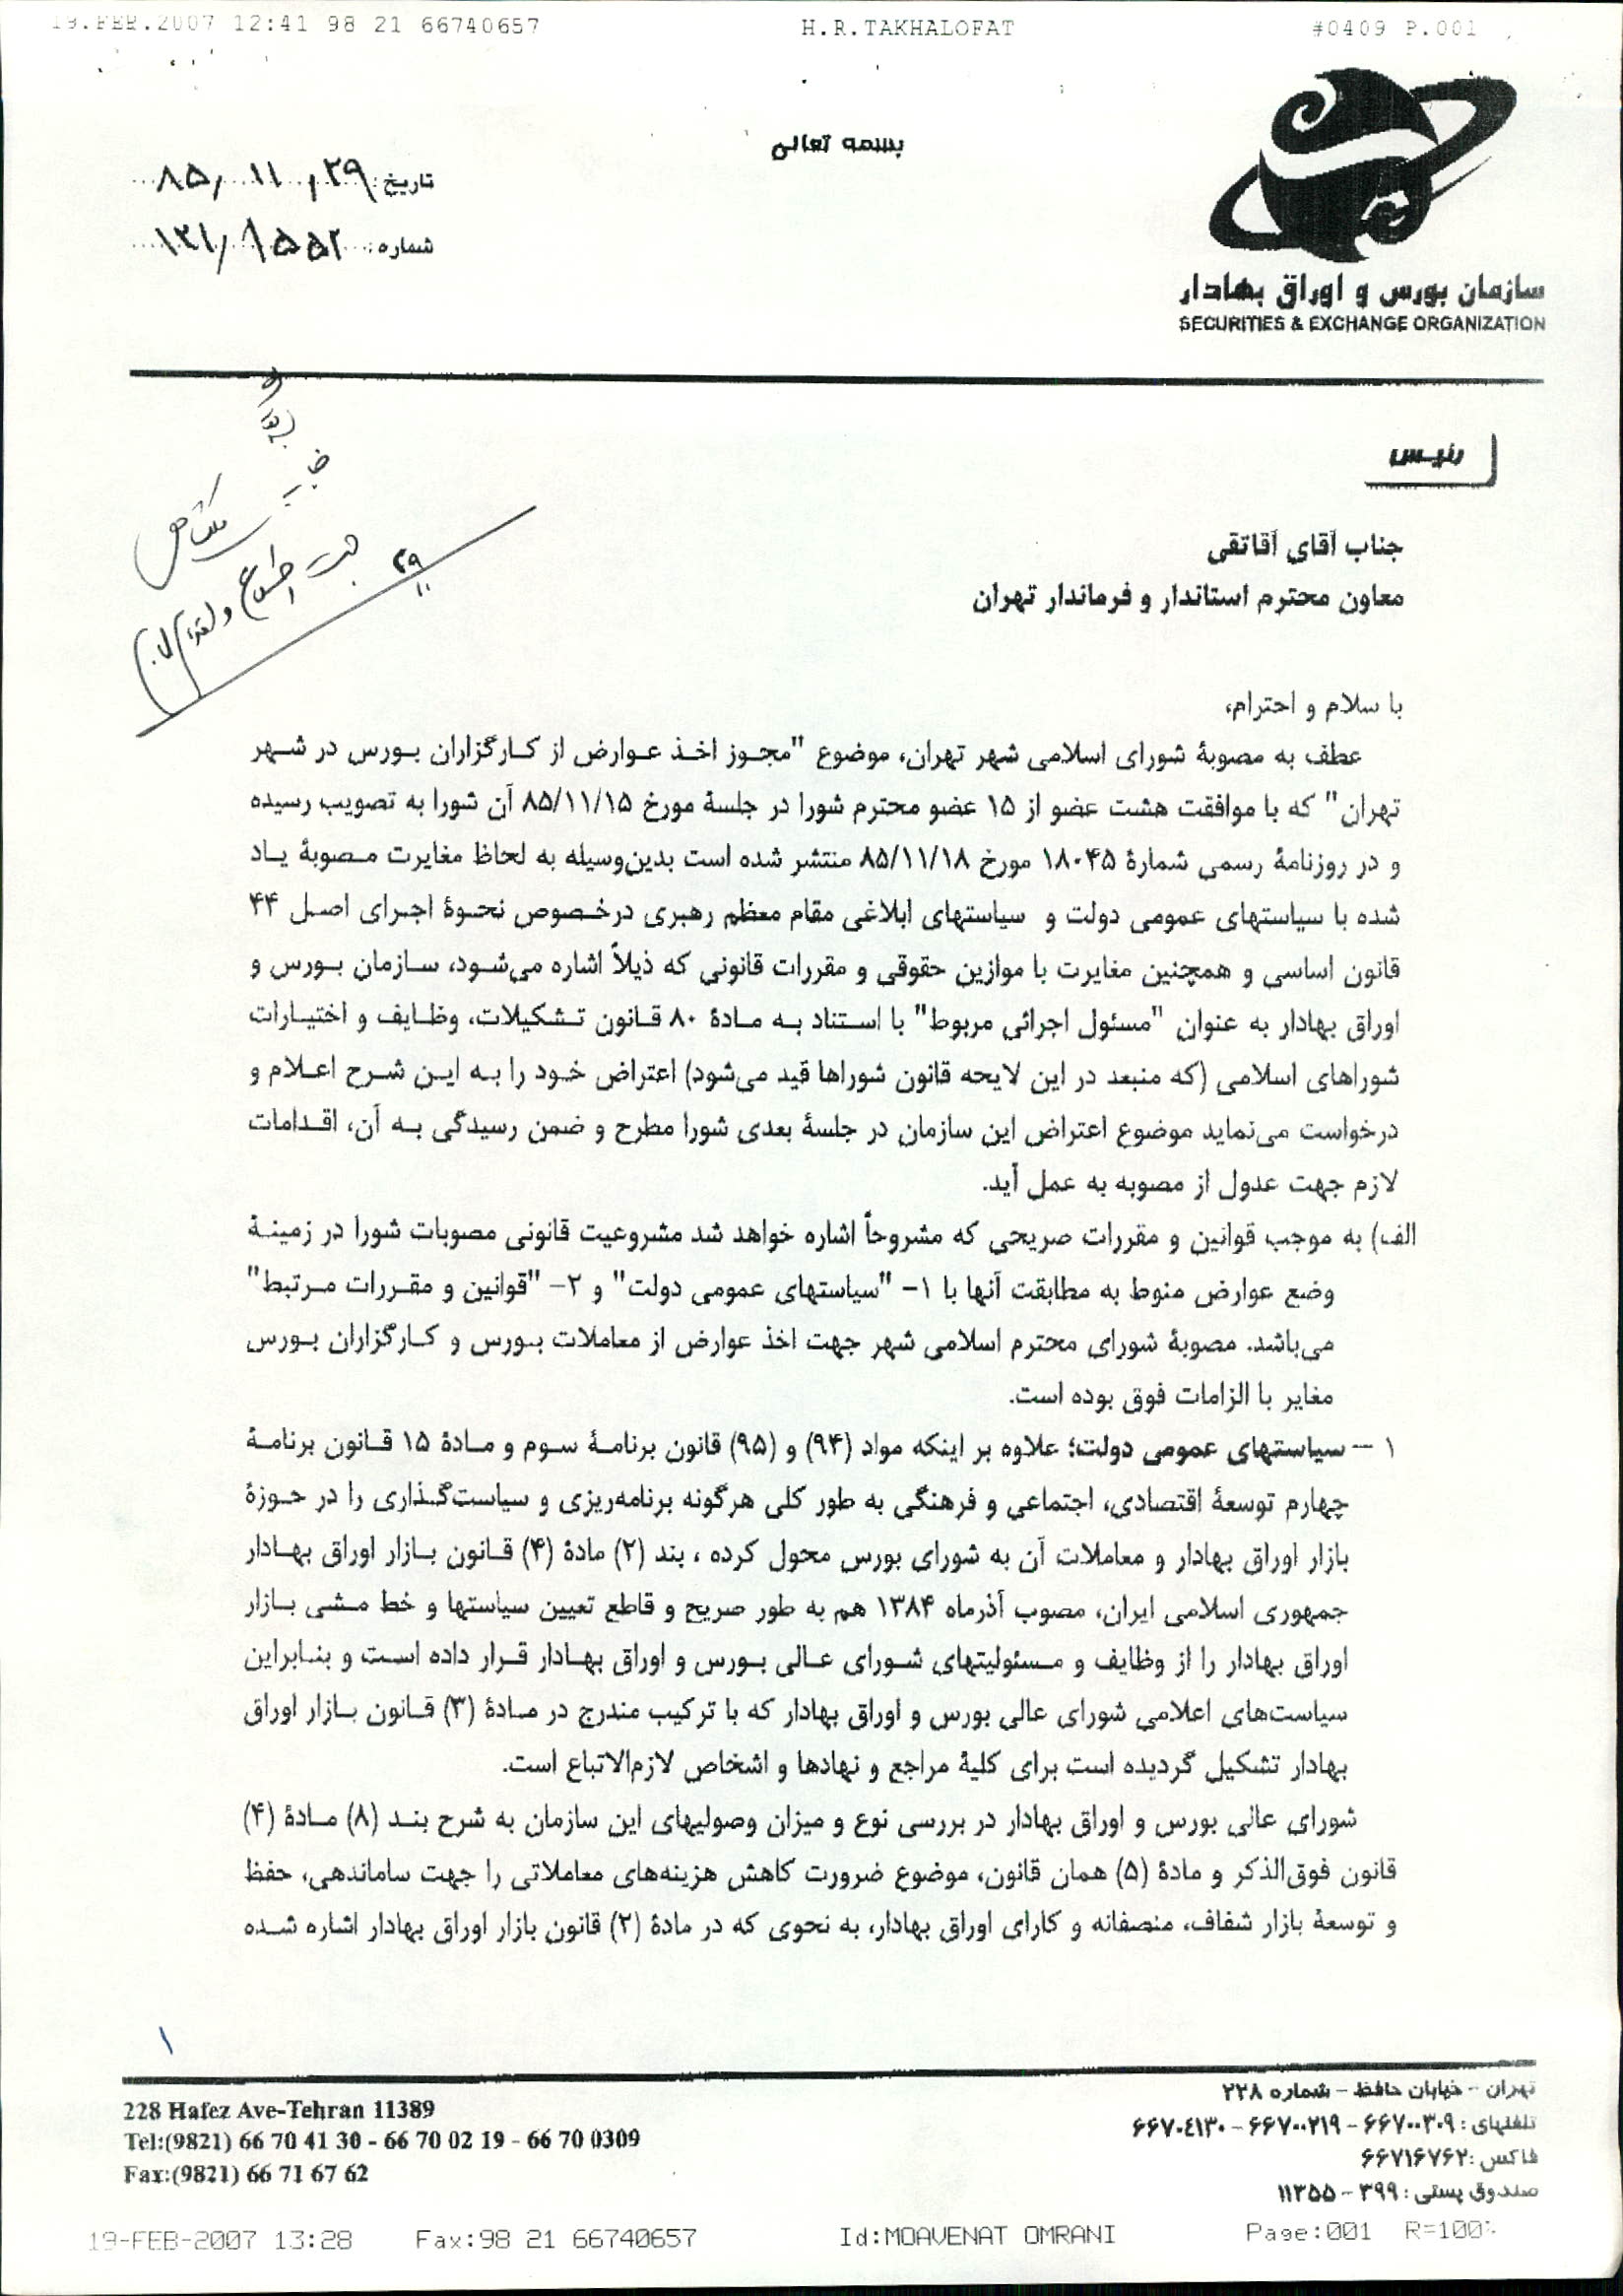 19.FEB.2007 12:41 98 21 66740657 H.R.TAKHALOFAT #0409 P.001
بسمه تعالی
تاریخ: ۸۵/۱۱/۲۹
شماره: ۱۲۱/۹۵۵۲
سازمان بورس و اوراق بهادار
SECURITIES & EXCHANGE ORGANIZATION
رئیس
جهت اطلاع و اقدام لازم
جناب آقای آقاتقی
معاون محترم استاندار و فرماندار تهران
با سلام و احترام،
عطف به مصوبهٔ شورای اسلامی شهر تهران، موضوع "مجوز اخذ عوارض از کارگزاران بورس در شهر
تهران" که با موافقت هشت عضو از ۱۵ عضو محترم شورا در جلسهٔ مورخ ۸۵/۱۱/۱۵ آن شورا به تصویب رسیده
و در روزنامهٔ رسمی شمارهٔ ۱۸۰۴۵ مورخ ۸۵/۱۱/۱۸ منتشر شده است بدین‌وسیله به لحاظ مغایرت مصوبهٔ یاد
شده با سیاستهای عمومی دولت و سیاستهای ابلاغی مقام معظم رهبری درخصوص نحوهٔ اجرای اصل ۴۴
قانون اساسی و همچنین مغایرت با موازین حقوقی و مقررات قانونی که ذیلاً اشاره می‌شود، سازمان بورس و
اوراق بهادار به عنوان "مسئول اجرائی مربوط" با استناد به مادهٔ ۸۰ قانون تشکیلات، وظایف و اختیارات
شوراهای اسلامی (که منبعد در این لایحه قانون شوراها قید می‌شود) اعتراض خود را به این شرح اعلام و
درخواست می‌نماید موضوع اعتراض این سازمان در جلسهٔ بعدی شورا مطرح و ضمن رسیدگی به آن، اقدامات
لازم جهت عدول از مصوبه به عمل آید.
الف) به موجب قوانین و مقررات صریحی که مشروحاً اشاره خواهد شد مشروعیت قانونی مصوبات شورا در زمینهٔ
وضع عوارض منوط به مطابقت آنها با ۱- "سیاستهای عمومی دولت" و ۲- "قوانین و مقررات مرتبط"
می‌باشد. مصوبهٔ شورای محترم اسلامی شهر جهت اخذ عوارض از معاملات بورس و کارگزاران بورس
مغایر با الزامات فوق بوده است.
۱ – سیاستهای عمومی دولت؛ علاوه بر اینکه مواد (۹۴) و (۹۵) قانون برنامهٔ سوم و مادهٔ ۱۵ قانون برنامهٔ
چهارم توسعهٔ اقتصادی، اجتماعی و فرهنگی به طور کلی هرگونه برنامه‌ریزی و سیاست‌گذاری را در حوزهٔ
بازار اوراق بهادار و معاملات آن به شورای بورس محول کرده ، بند (۲) مادهٔ (۴) قانون بازار اوراق بهادار
جمهوری اسلامی ایران، مصوب آذرماه ۱۳۸۴ هم به طور صریح و قاطع تعیین سیاستها و خط مشی بازار
اوراق بهادار را از وظایف و مسئولیتهای شورای عالی بورس و اوراق بهادار قرار داده است و بنابراین
سیاست‌های اعلامی شورای عالی بورس و اوراق بهادار که با ترکیب مندرج در مادهٔ (۳) قانون بازار اوراق
بهادار تشکیل گردیده است برای کلیهٔ مراجع و نهادها و اشخاص لازم‌الاتباع است.
شورای عالی بورس و اوراق بهادار در بررسی نوع و میزان وصولیهای این سازمان به شرح بند (۸) مادهٔ (۴)
قانون فوق‌الذکر و مادهٔ (۵) همان قانون، موضوع ضرورت کاهش هزینه‌های معاملاتی را جهت ساماندهی، حفظ
و توسعهٔ بازار شفاف، منصفانه و کارای اوراق بهادار، به نحوی که در مادهٔ (۲) قانون بازار اوراق بهادار اشاره شده
۱
تهران - خیابان حافظ - شماره ۲۲۸
تلفنهای : ۶۶۷۰۰۳۰۹ - ۶۶۷۰۰۲۱۹ - ۶۶۷۰٤۱۳۰
فاکس :۶۶۷۱۶۷۶۲
صندوق پستی : ۳۹۹ - ۱۱۳۵۵
228 Hafez Ave-Tehran 11389
Tel:(9821) 66 70 41 30 - 66 70 02 19 - 66 70 0309
Fax:(9821) 66 71 67 62
19-FEB-2007 13:28 Fax:98 21 66740657 Id:MOAVENAT OMRANI Page:001 R=100%